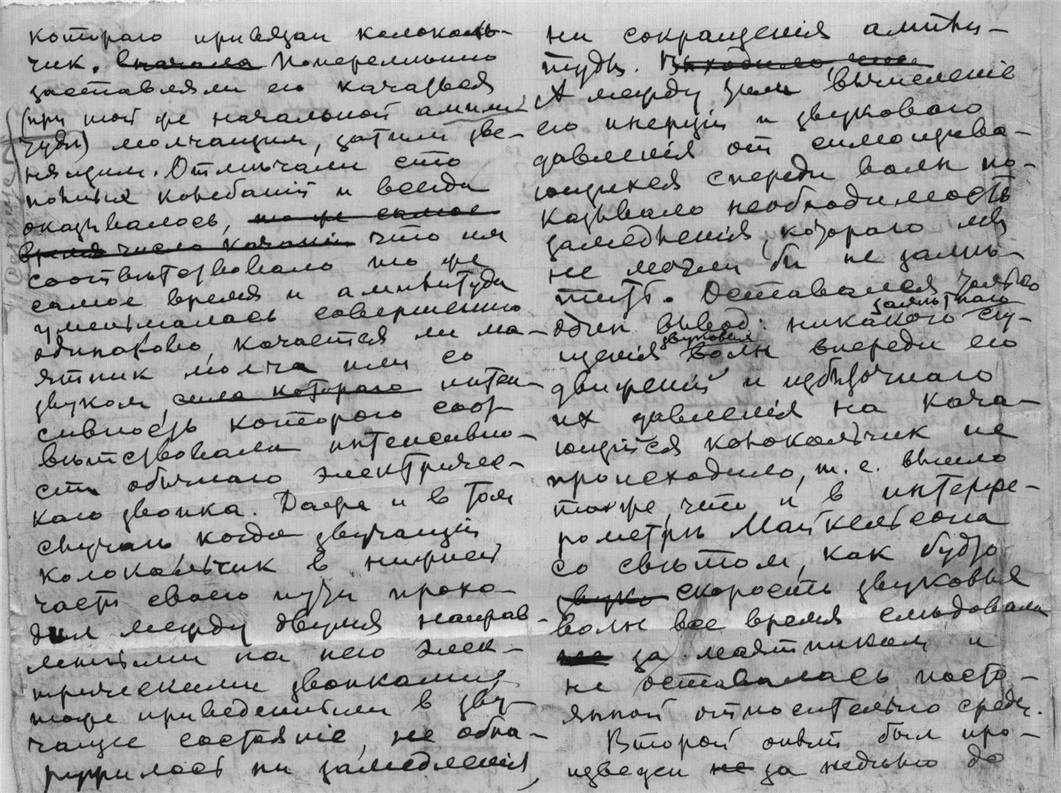 котораго привязан колоколь-
чик. вначале Попеременно
заставляли его качаться
(при той же начальной ампли-
туде) молчащим, затем зве-
нящим. Отмечали сто
колебаній и всегда
оказывалось, то же самое
время число качаній что им
соответствовало то же
самое время и амплитуда
уменьшалась совершенно
одинаково, качается ли ма-
ятник молча или со
звуком, сила котораго интен-
сивность котораго соот-
ветствовала интенсивно-
сти обычнаго электричес-
каго звонка. Даже и в том
случае когда звучащій
колокольчик в нижней
части своего пути прохо-
дил между двумя направ-
ленными на него элек-
трическими звонками,
тоже приведенными в зву-
чащее состояніе, не обна-
ружилось ни замедленія,
ни сокращенія ампли-
туды. Выходило
А между тем вычисленіе
его инерціи и звуковаго
давленія от сгущива-
ющихся спереди волн по-
казывало необходимость
замедленія, котораго мы
не могли бы не заме-
тить. Оставался только
один вывод: никакого заметнаго сгу-
щенія звуковых волн впереди его
движеній и избыточнаго
их давленія на кача-
ющійся колокольчик не
происходило, т. е. вышло
то же, что и в интерфе-
рометре Майкельсона
со светом, как будто
звуко скорость звуковых
волн все время следовала
не за маятником и
не оставалась посто-
янной относительно среды.
Второй опыт был про-
изведен не за неделю до